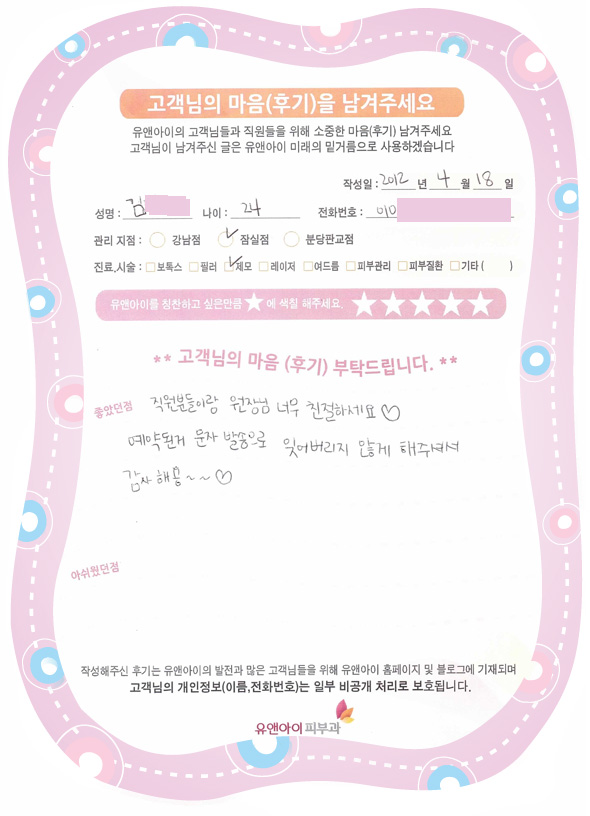 고객님의 마음(후기)을 남겨주세요
유앤아이의 고객님들과 직원들을 위해 소중한 마음(후기) 남겨주세요
고객님이 남겨주신 글은 유앤아이 미래의 밑거름으로 사용하겠습니다
작성일 : 2012 년 4 월 18 일
성명 : 김 나이 : 24 전화번호 : 010
관리 지점 : 강남점 잠실점 분당판교점
진료,시술 : 보톡스 필러 제모 레이저 여드름 피부관리 피부질환 기타 ( )
유앤아이를 칭찬하고 싶은만큼 ★ 에 색칠 해주세요. ★★★★★
** 고객님의 마음 (후기) 부탁드립니다. **
좋았던점 직원분들이랑 원장님 너무 친절하세요 ♡
예약된거 문자 발송으로 잊어버리지 않게 해주셔서
감사해용~~ ♡
아쉬웠던점
작성해주신 후기는 유앤아이의 발전과 많은 고객님들을 위해 유앤아이 홈페이지 및 블로그에 기재되며
고객님의 개인정보(이름,전화번호)는 일부 비공개 처리로 보호됩니다.
유앤아이피부과